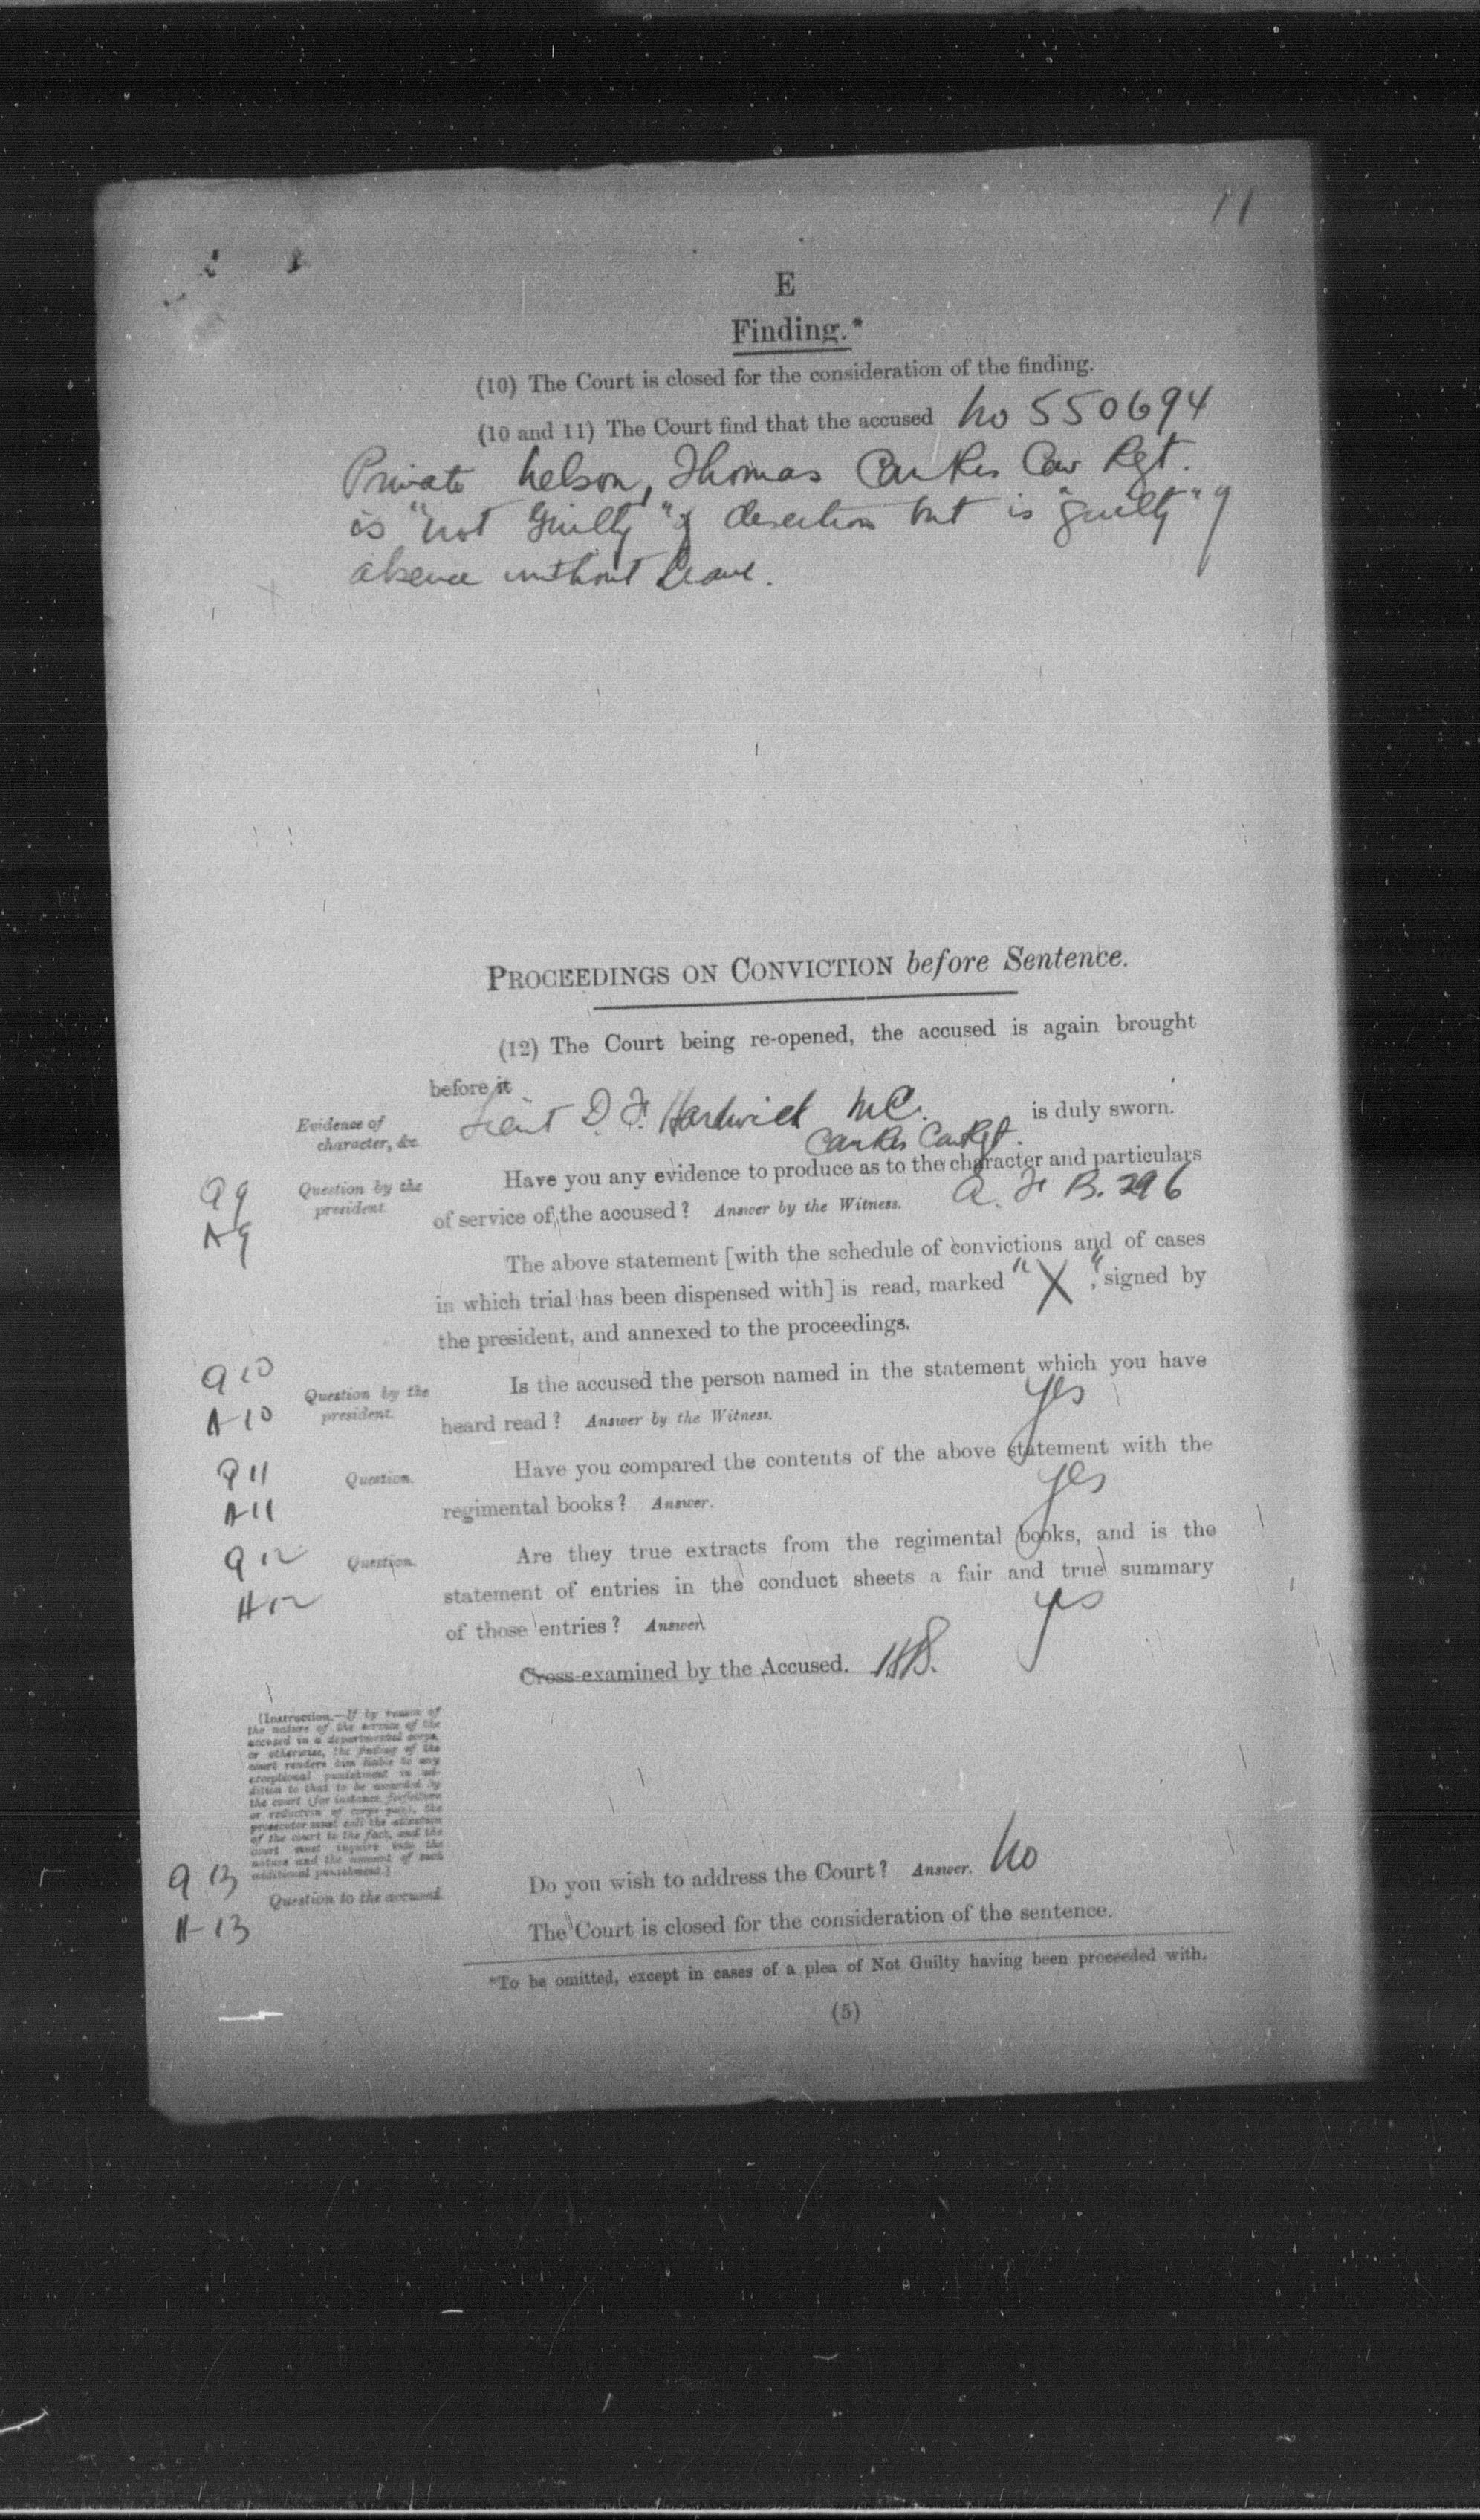 11
E
Finding.*
(10) The Court is closed for the consideration of the finding.
(10 and 11) The Court find that the accused No 550694
Private Nelson, Thomas Can Res Cav Rgt.
is "not guilty" of desertion but is "guilty" of
absence without leave.
PROCEEDINGS ON CONVICTION before Sentence.
(12) The Court being re-opened, the accused is again brought
before it
Evidence of character, &c.
Lieut D. F. Hardwick M.C. is duly sworn.
Can Res Cav Rgt.
Q9 Question by the president.
Have you any evidence to produce as to the character and particulars
A9
of service of the accused? Answer by the Witness. A. F. B. 296
The above statement [with the schedule of convictions and of cases
in which trial has been dispensed with] is read, marked "X", signed by
the president, and annexed to the proceedings.
Q10 Question by the president.
Is the accused the person named in the statement which you have
A10
heard read? Answer by the Witness. yes
Q11 Question.
Have you compared the contents of the above statement with the
A11
regimental books? Answer. yes
Q12 Question.
Are they true extracts from the regimental books, and is the
A12
statement of entries in the conduct sheets a fair and true summary
of those entries? Answer. yes
Cross-examined by the Accused.
[Instruction.—If by reason of
the nature of the service of the
accused in a departmental corps,
or otherwise, the finding of the
court renders him liable to any
exceptional punishment in ad-
dition to that to be awarded by
the court (for instance, forfeiture
or reduction of corps pay), the
prosecutor must call the attention
of the court to the fact, and the
court must inquire into the
nature and the amount of such
additional punishment.]
Q13
Question to the accused.
A13
Do you wish to address the Court? Answer. No
The Court is closed for the consideration of the sentence.
*To be omitted, except in cases of a plea of Not Guilty having been proceeded with.
(5)